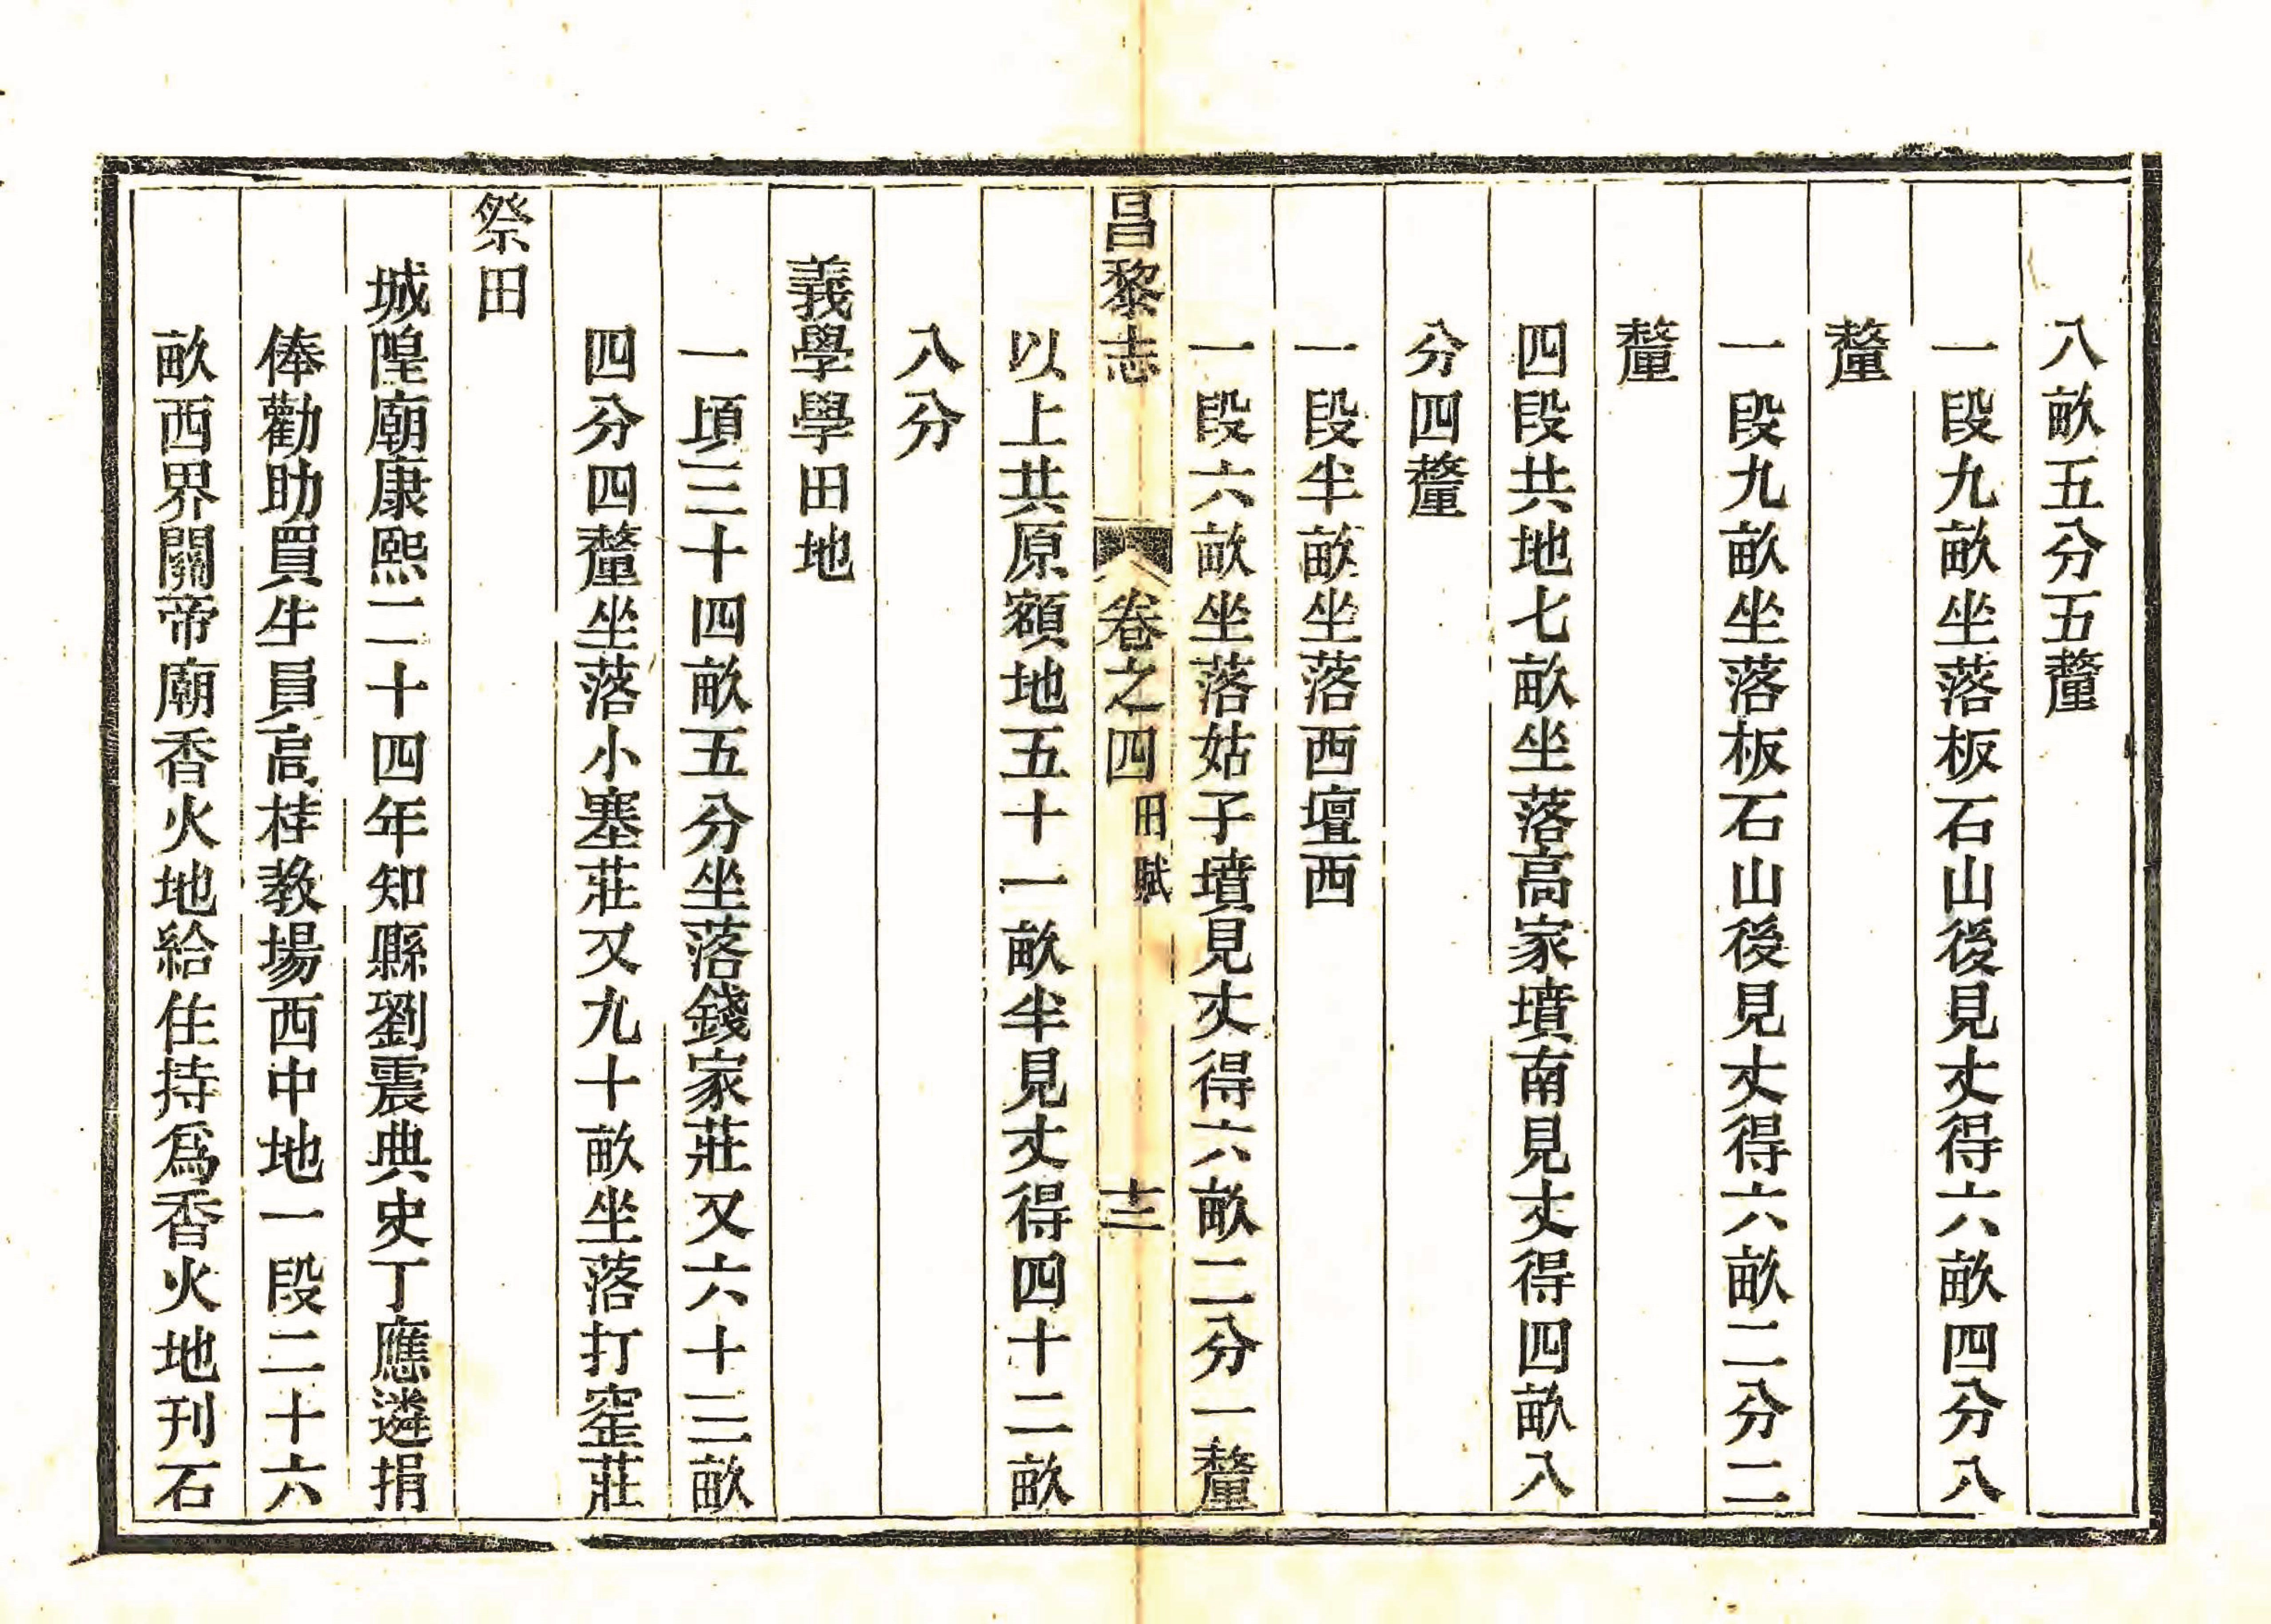 八畝五分五釐
一段九畝坐落板石山後見丈得六畝四分八
釐
一段九畝坐落板石山後見丈得六畝二分二
釐
四段共地七畝坐落高家墳南見丈得四畝八
分四釐
一段半畝坐落西壇西
一段六畝坐落姑子墳見丈得六畝二分一釐
昌黎志 卷之四 田賦 十二
以上共原額地五十一畝半見丈得四十二畝
八分
義學學田地
一頃三十四畝五分坐落錢家莊又六十三畝
四分四釐坐落小寨莊又九十畝坐落打窑莊
祭田
城隍廟康熙二十四年知縣劉震典史丁應遴捐
俸勸助買生員高桂教場西中地一段二十六
畝西界關帝廟香火地給住持爲香火地刊石